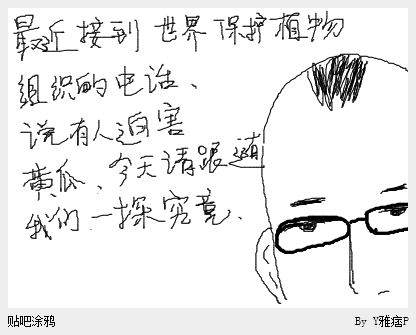 最近接到世界保护植物
组织的电话、
说有人迫害
黄瓜、今天请跟随
我们一探究竟.
贴吧涂鸦
By Y雅痞P